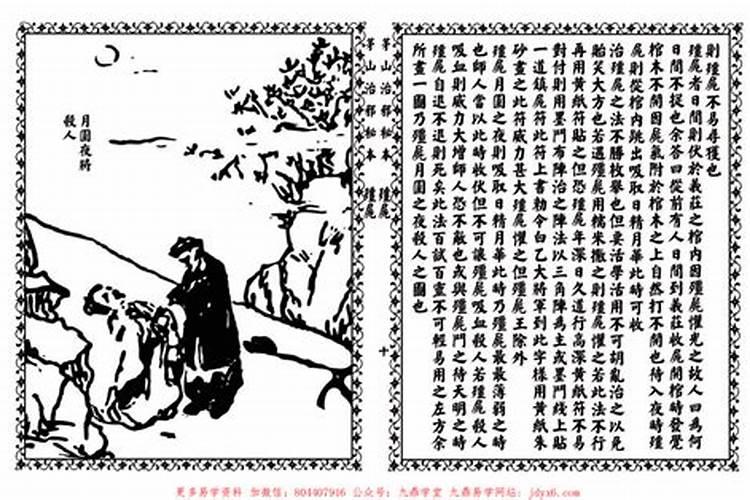 則殭屍不易尋獲也
殭屍者日間則伏於義莊之棺內因殭屍懼光之故人曰為何
日間不捉也余答曰從前有人日間到義莊收屍開棺時發覺
棺木不開因屍氣附於棺木之上自然打不開也待入夜時殭
屍則從棺內跳出吸取日精月華此時可收
治殭屍之法不勝枚舉也但要活學活用不可胡亂治之以免
貽笑大方也若遇殭屍用糯米撒之則殭屍懼之若此法不行
再用黃紙符貼之但恐殭屍年深日久道行高深黃紙符不易
對付則用墨鬥布陣治之陣法以三角陣為主或墨鬥綫上貼
一道鎮屍符此符上書勅令白乙大將軍到此字樣用黃紙朱
砂畫之此符威力甚大殭屍懼之但殭屍王除外
殭屍月圓之夜則吸取日精月華此時乃殭屍最最薄弱之時
也師人當以此時收伏但不可讓殭屍吸血殺人若殭屍殺人
吸血則威力大增師人恐不敵也或與殭屍鬥之待天明之時
殭屍自退不退則死矣此法百試百靈不可輕易用之左方余
所畫一圖乃殭屍月圓之夜殺人之圖也
茅山治邪秘本 殭屍
茅山治邪秘本 殭屍
十
月圓夜將
殺人
更多易学资料 加微信：804407946 公众号：九鼎学堂 九鼎易学网站：jdyx6.com